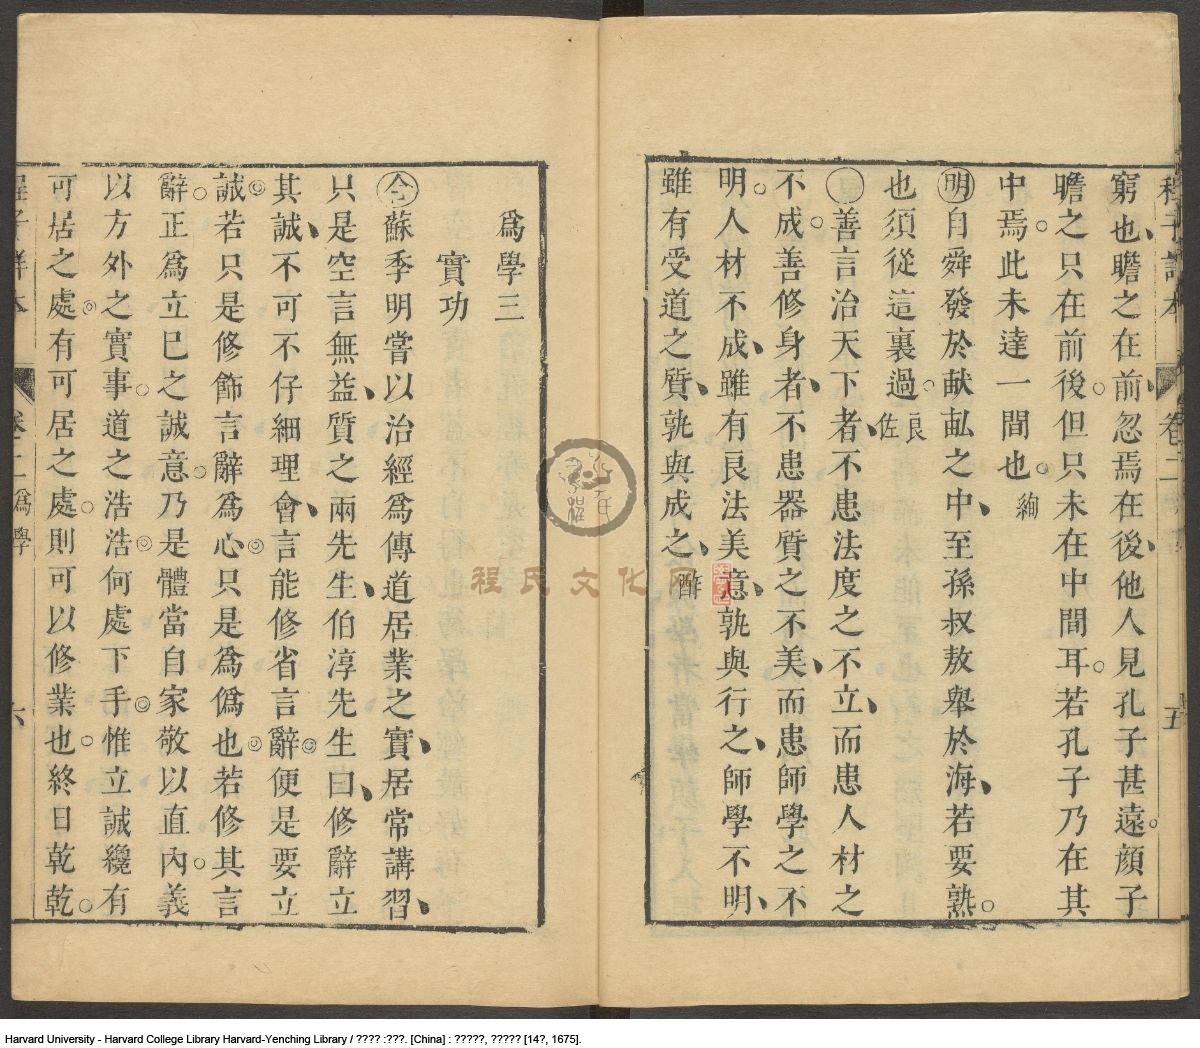 窮也瞻之在前忽焉在後他人見孔子甚遠顔子
瞻之只在前後但只未在中間耳若孔子乃在其
中焉此未達一間也絢
明自舜發於畎畝之中至孫叔敖舉於海若要熟
也須從這裏過良佐
善言治天下者不患法度之不立而患人材之
不成善修身者不患器質之不美而患師學之不
明人材不成雖有良法美意孰與行之師學不明
雖有受道之質孰與成之酢
爲學三
實功
合蘇季明嘗以治經爲傳道居業之實居常講習
只是空言無益質之兩先生伯淳先生曰修辭立
其誠不可不仔細理會言能修省言辭便是要立
誠若只是修飾言辭爲心只是爲僞也若修其言
辭正爲立已之誠意乃是體當自家敬以直內義
以方外之實事道之浩浩何處下手惟立誠纔有
可居之處有可居之處則可以修業也終日乾乾
卷二
五
卷二爲學
六
程氏文化网
Harvard University - Harvard College Library Harvard-Yenching Library / ???? :???. [China] : ?????, ????? [14?, 1675].